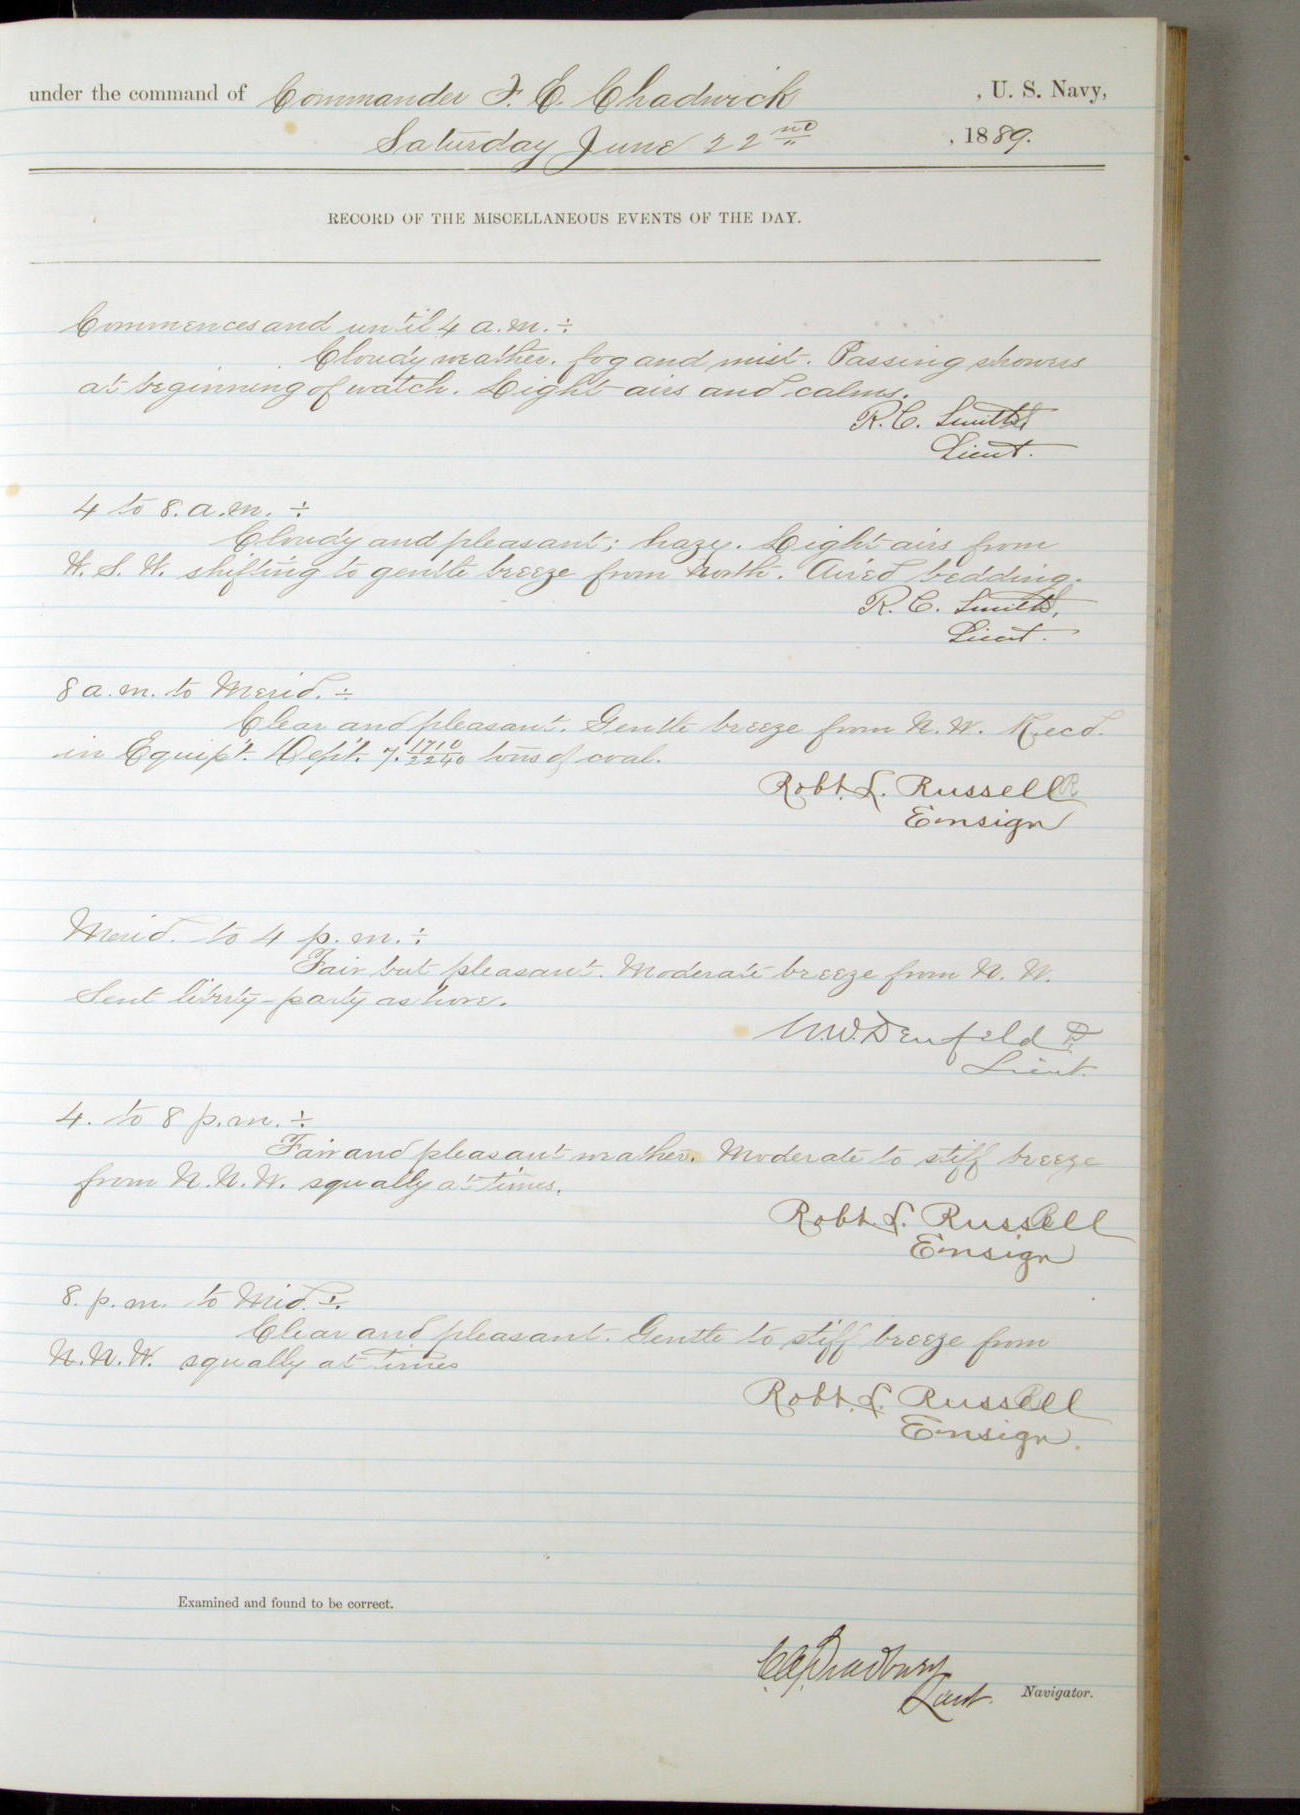 under the command of Commander F. E. Chadwick , U. S. Navy,
Saturday June 22nd , 1889.
RECORD OF THE MISCELLANEOUS EVENTS OF THE DAY.
Commences and until 4 a.m. ÷
Cloudy weather. fog and mist. Passing showers
at beginning of watch. Light airs and calms.
R. C. Smith,
Lieut.
4 to 8. a.m. ÷
Cloudy and pleasant; hazy. Light airs from
W. S. W. shifting to gentle breeze from North. Aired bedding.
R. C. Smith,
Lieut.
8 a. m. to Merid. ÷
Clear and pleasant. Gentle breeze from N. W. Recd.
in Equipt. Dept. 7. 1710/2240 tons of coal.
Robt. L. Russell
Ensign
Merid. to 4 p. m. ÷
Fair but pleasant. Moderate breeze from N. W.
Sent liberty-party ashore.
Denfeld
Lieut.
4. to 8 p.m. ÷
Fair and pleasant weather. Moderate to stiff breeze
from N.N.W. squally at times.
Robt. L. Russell
Ensign
8. p. m. to Mid. ÷
Clear and pleasant. Gentle to stiff breeze from
N.N.W. squally at times
Robt. L. Russell
Ensign.
Examined and found to be correct.
C. A. Bradbury
Lieut. Navigator.